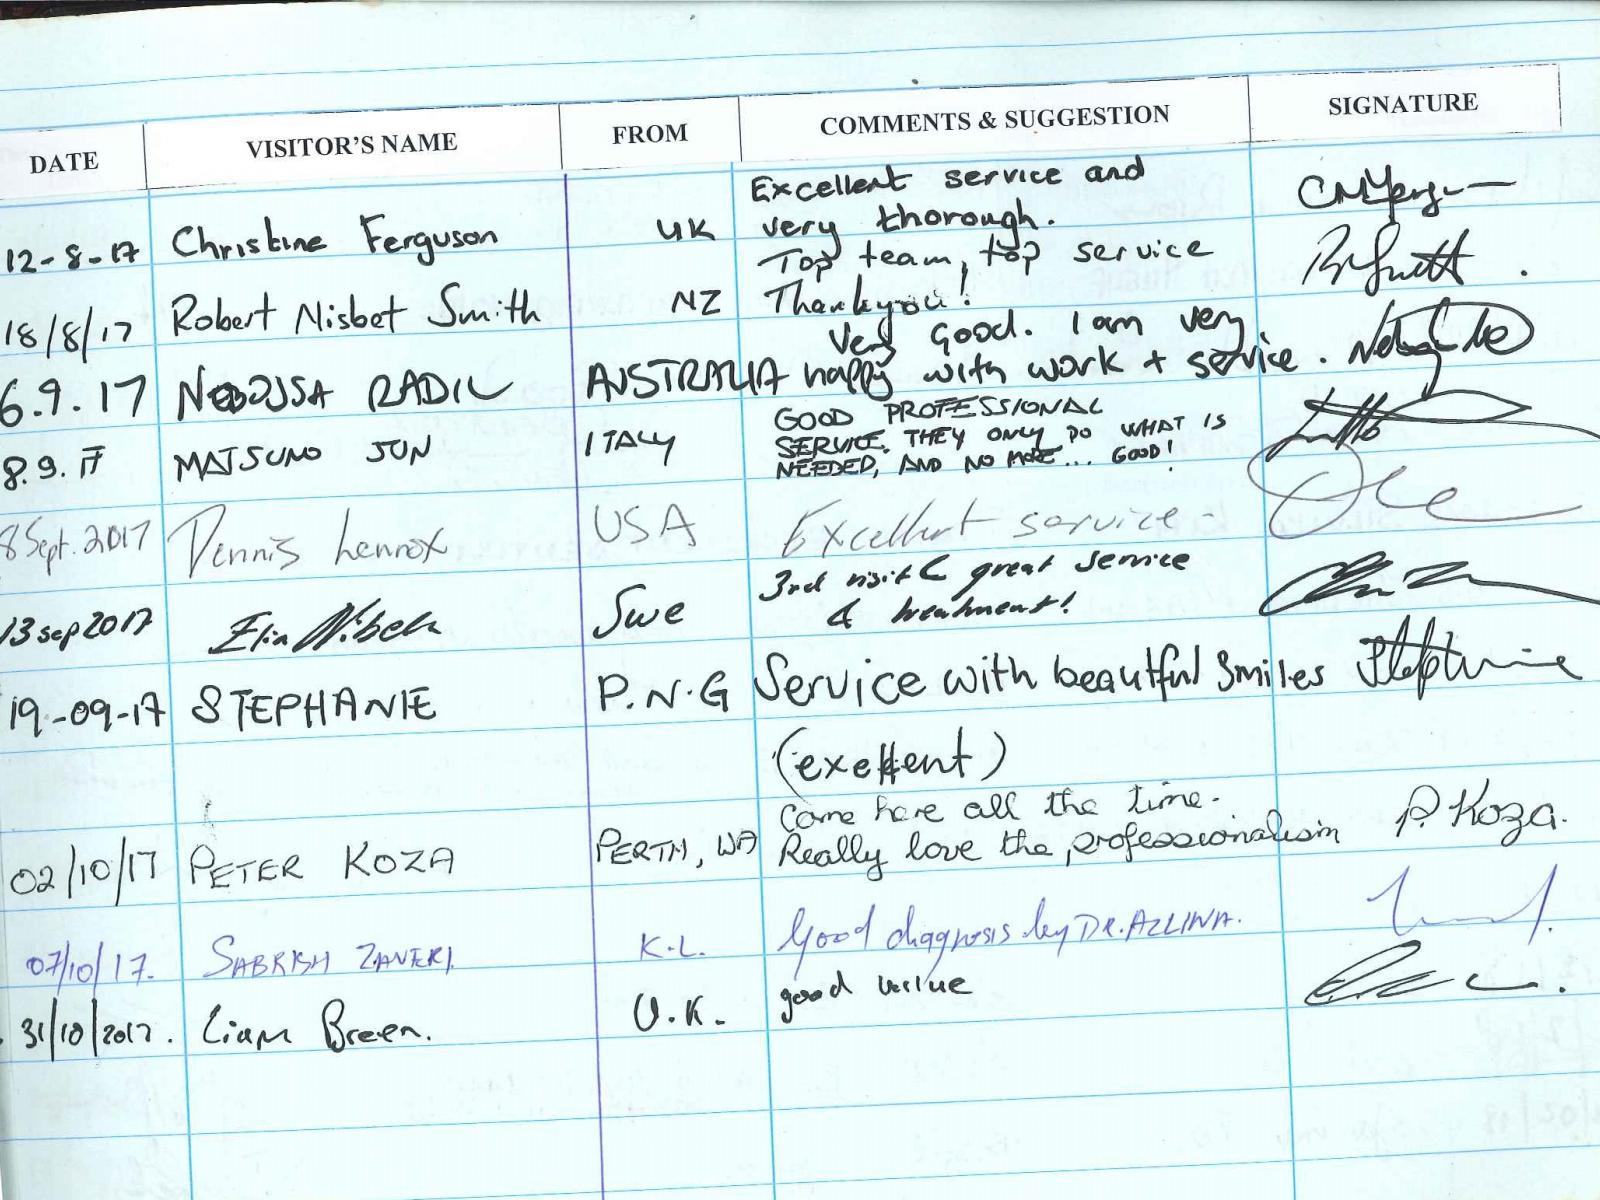 DATE VISITOR'S NAME FROM COMMENTS & SUGGESTION SIGNATURE
12-8-17 Christine Ferguson UK Excellent service and
very thorough.
18/8/17 Robert Nisbet Smith NZ Top team, top service
Thank you!
6.9.17 NEBOJSA RADIC AUSTRALIA Very Good. I am very
happy with work + service.
8.9.17 MATSUNO JUN ITALY GOOD PROFESSIONAL
SERVICE. THEY ONLY DO WHAT IS
NEEDED, AND NO MORE... GOOD!
8 Sept. 2017 Dennis Lennox USA Excellent service
13 sep 2017 Swe 3rd visit great service
& treatment!
19-09-17 STEPHANIE P.N.G Service with beautiful Smiles
(exellent)
02/10/17 PETER KOZA PERTH, WA Come here all the time.
Really love the professionalism P. Koza.
07/10/17. SABRISH ZAVERI K.L. Good diagnosis by DR. AZLINA.
31/10/2017. Liam Breen. U.K. good value